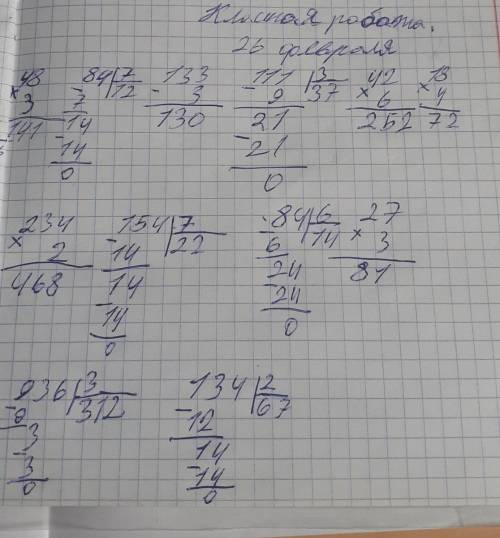 Классная работа.
26 февраля
48 84|7 133 111|3 42 18
× 3 - 7 12 - 3 - 9 37 × 6 × 4
141 14 130 21 252 72
- 14 - 21
0 0
234 154|7 84|6 27
× 2 - 14 22 - 6 14 × 3
468 14 24 81
- 14 - 24
0 0
936|3 134|2
- 9 312 - 12 67
3 14
- 3 - 14
0 0